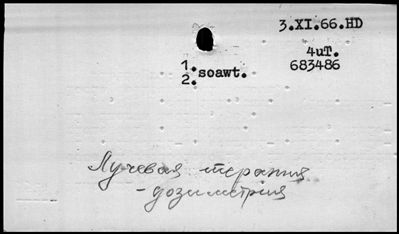 3.XI.66.HD
4uT.
1.soawt.
683486
2.
Лучевая терапия
- дозиметрия